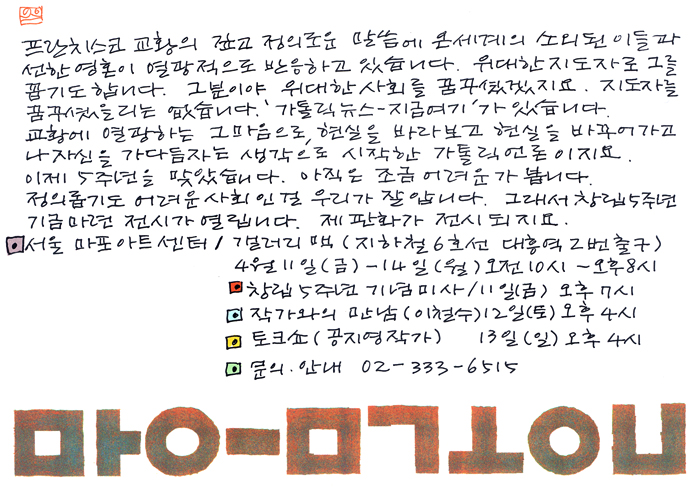 프란치스코 교황의 곧고 정의로운 말씀에 온세계의 소외된 이들과
선한영혼이 열광적으로 반응하고 있습니다. 위대한지도자로 그를
꼽기도합니다. 그분이야 위대한사회를 꿈꾸셨겠지요. 지도자는
꿈꾸셨을리는 없습니다. '가톨릭뉴스-지금여기'가 있습니다.
교황에 열광하는 그마음으로, 현실을 바라보고 현실을 바꾸어가고
나자신을 가다듬자는 생각으로 시작한 가톨릭언론이지요.
이제 5주년을 맞았습니다. 아직은 조금 어려운가 봅니다.
정의롭기도 어려운사회인걸 우리가 잘압니다. 그래서 창립5주년
기금마련 전시가 열립니다. 제 판화가 전시되지요.
서울 마포아트센터 / 갤러리 맥 (지하철 6호선 대흥역 2번출구)
4월 11일(금) - 14일(월) 오전10시 ~ 오후8시
창립 5주년 기념미사 / 11일(금) 오후 7시
작가와의 만남(이철수) 12일(토) 오후 4시
토크쇼(공지영작가) 13일(일) 오후 4시
문의.안내 02-333-6515